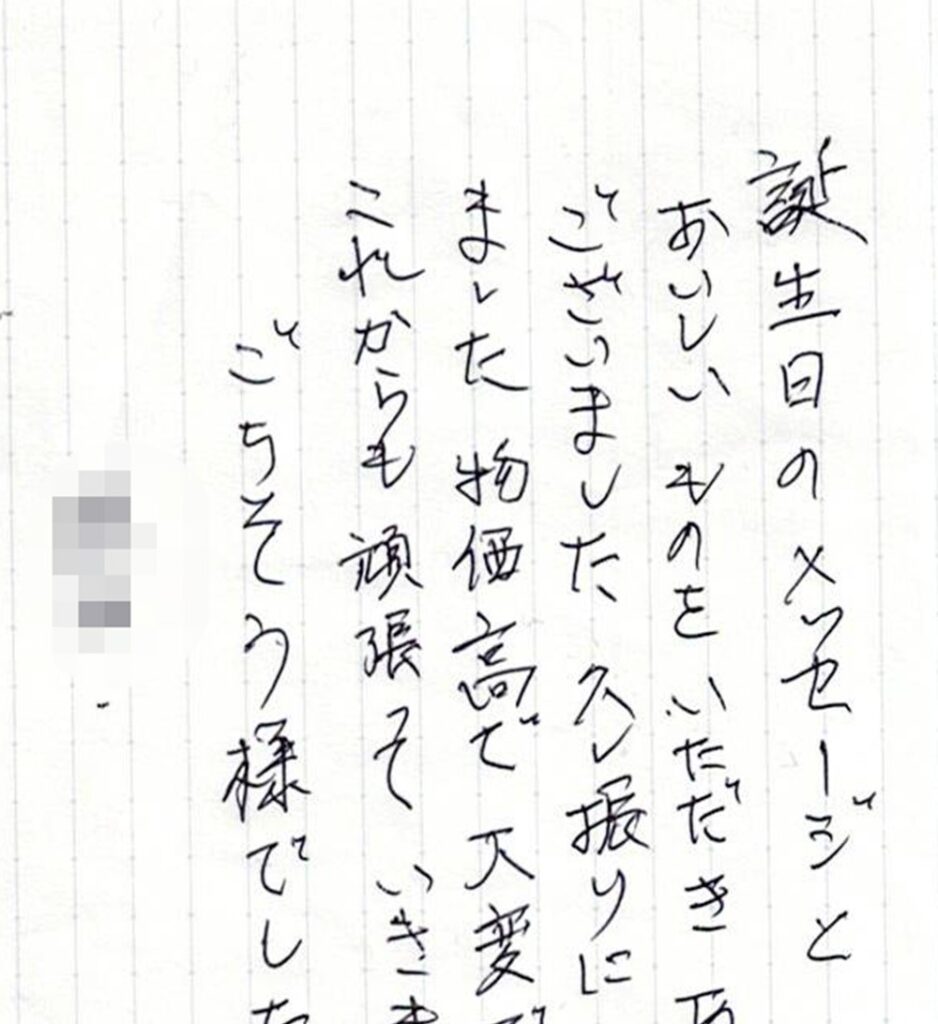 誕生日のメッセージと
おいしいものをいただき
ございました 久し振りに
ました 物価高で 大変
これからも 頑張って いきま
ごちそう様でした